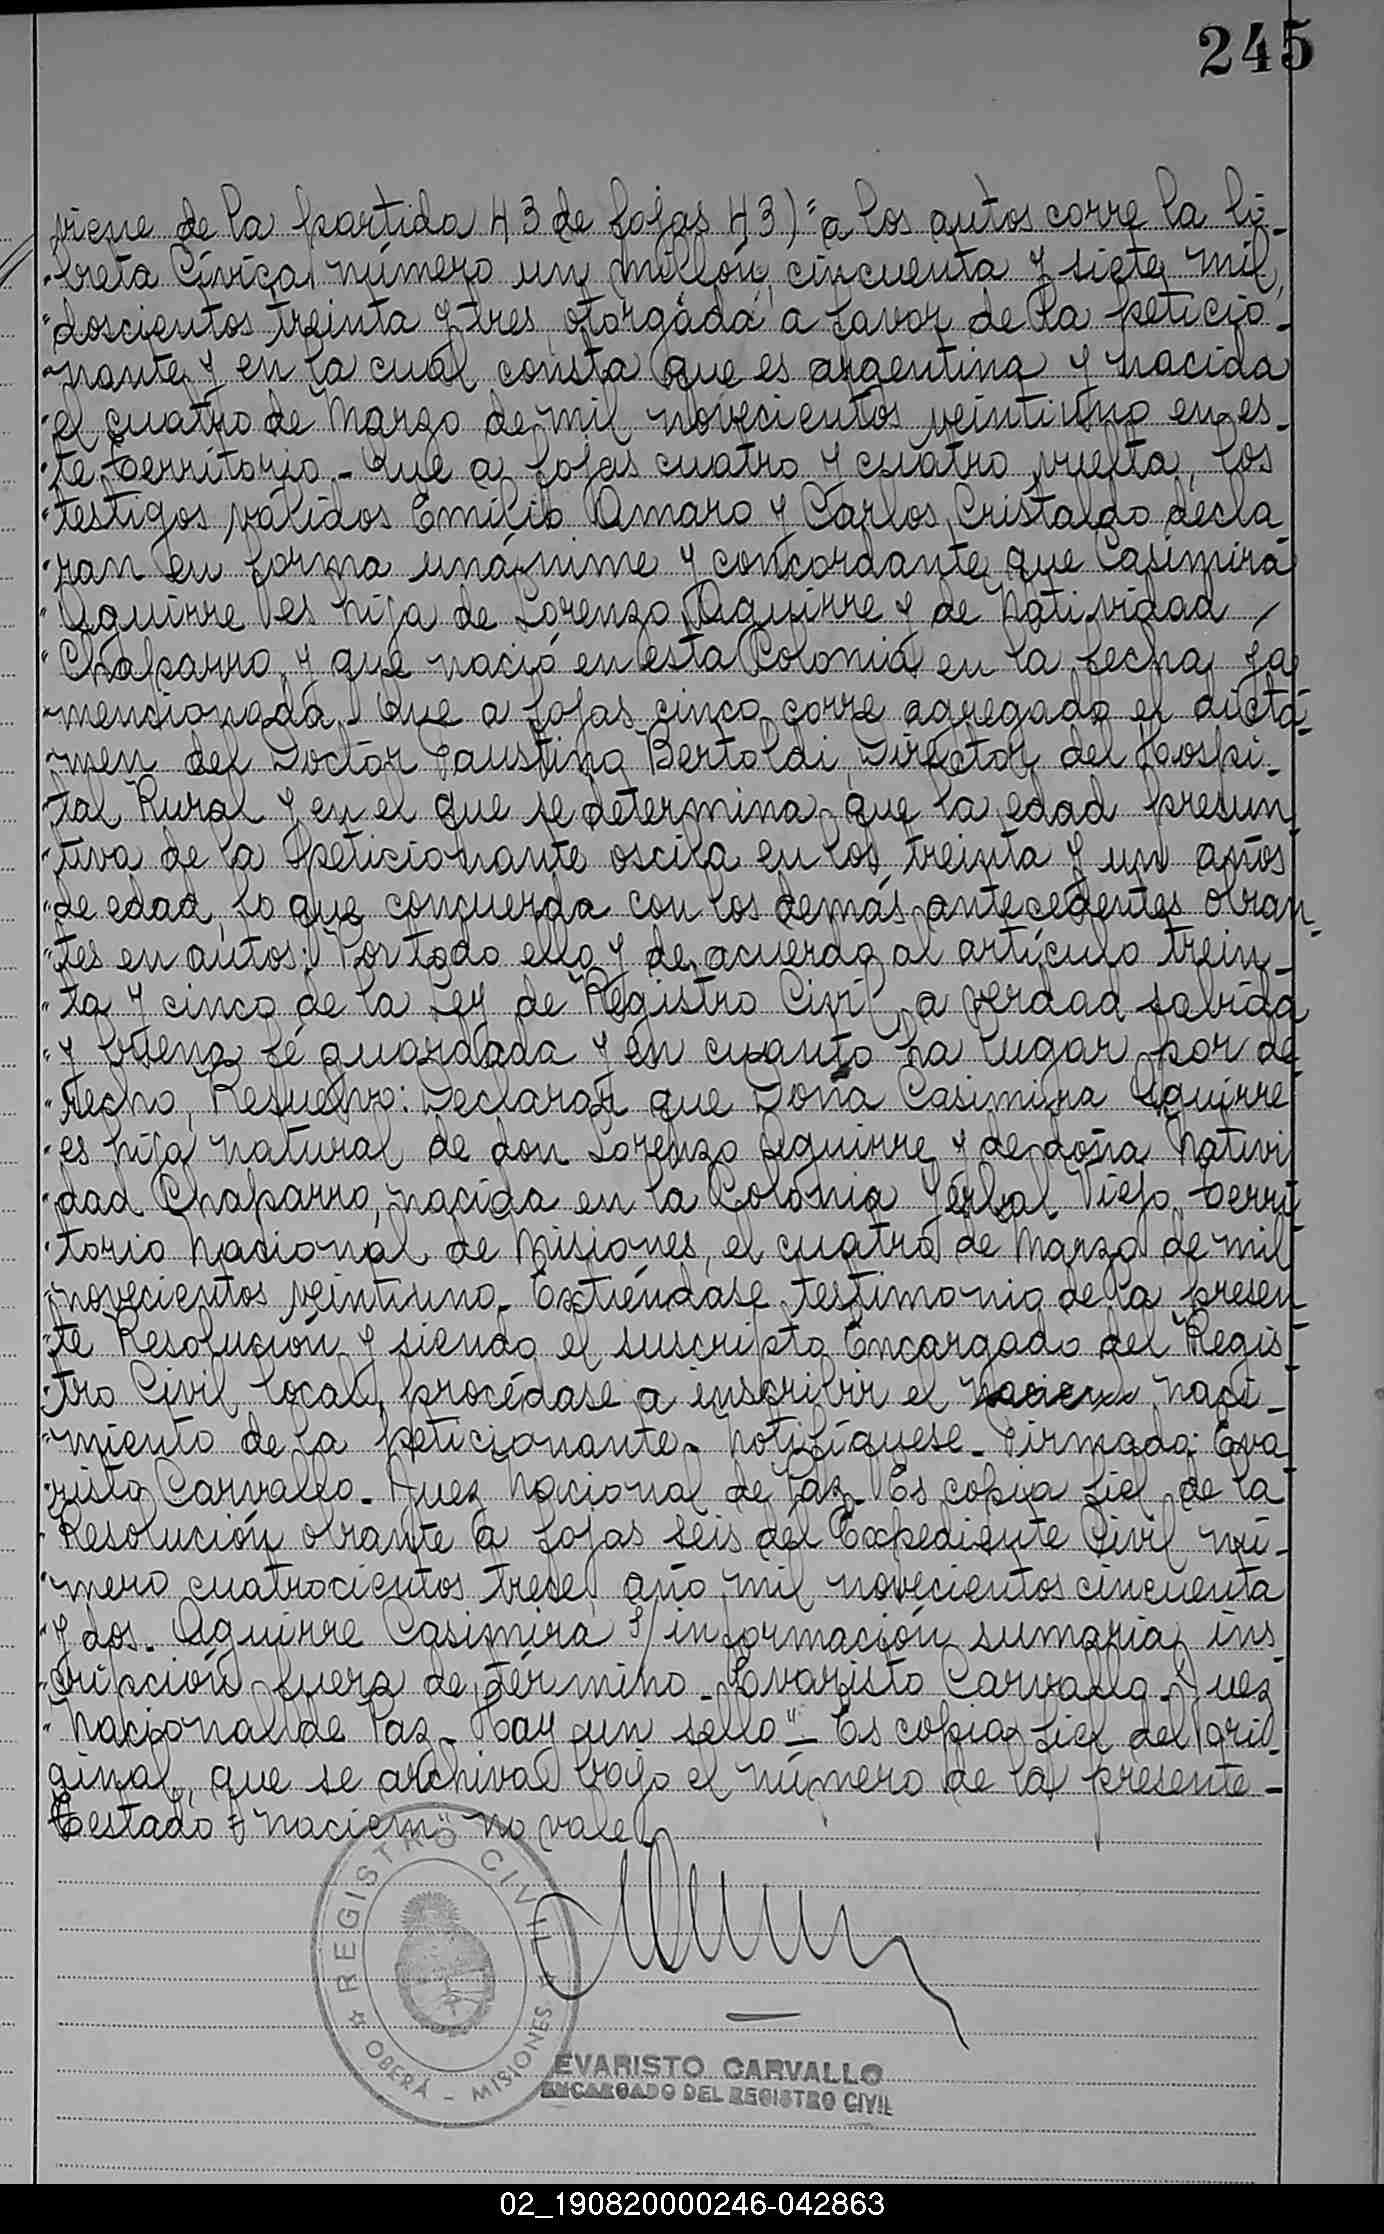 245
viene de la partida 43 de fojas 43) "a los autos corre la li-
"breta Cívica número un millón, cincuenta y siete mil,
"doscientos treinta y tres, otorgada a favor de la peticio-
"nante y en la cual consta que es argentina y nacida
"el cuatro de Marzo de mil novecientos veintiuno en es-
"te territorio - Que a fojas cuatro y cuatro vuelta, los
"testigos válidos Emilio Amaro y Carlos Cristaldo decla
"ran en forma unánime y concordante que Casimira
"Aguirre es hija de Lorenzo Aguirre y de Natividad /
"Chaparro, y que nació en esta Colonia en la fecha ya
"mencionada. Que a fojas cinco corre agregado el dictá-
"men del Doctor Faustino Bertoldi, Director del Hospi-
"tal Rural y en el que se determina que la edad presun
"tiva de la peticionante oscila en los treinta y un años
"de edad, lo que concuerda con los demás antecedentes obran-
"tes en autos: Por todo ello y de acuerdo al artículo trein-
"ta y cinco de la Ley de Registro Civil, a verdad sabida
"y buena fé guardada y en cuanto ha lugar por de
"recho, Resuelvo: Declarar que Doña Casimira Aguirre
"es hija natural de don Lorenzo Aguirre y de doña Nativi
"dad Chaparro, nacida en la Colonia Yerbal Viejo, terri
"torio Nacional de Misiones, el cuatro de Marzo de mil
"novecientos veintiuno - Extiéndase testimonio de la presen
"te Resolución y siendo el suscripto Encargado del Regis
"tro Civil local, procédase a inscribir el nacien naci-
"miento de la peticionante - Notifíquese - Firmado: Eva
"risto Carvallo - Juez Nacional de Paz - Es copia fiel de la
"Resolución obrante a fojas seis del Expediente Civil nú-
"mero cuatrocientos trece, año mil novecientos cincuenta
"y dos - Aguirre Casimira s/ información sumaria, ins
"cripción fuera de término - Evaristo Carvallo - Juez
"Nacional de Paz - Hay un sello" - Es copia fiel del ori-
ginal, que se archiva bajo el número de la presente -
Testado = "nacien" no vale -
REGISTRO CIVIL
OBERÁ - MISIONES
EVARISTO CARVALLO
ENCARGADO DEL REGISTRO CIVIL
02_190820000246-042863